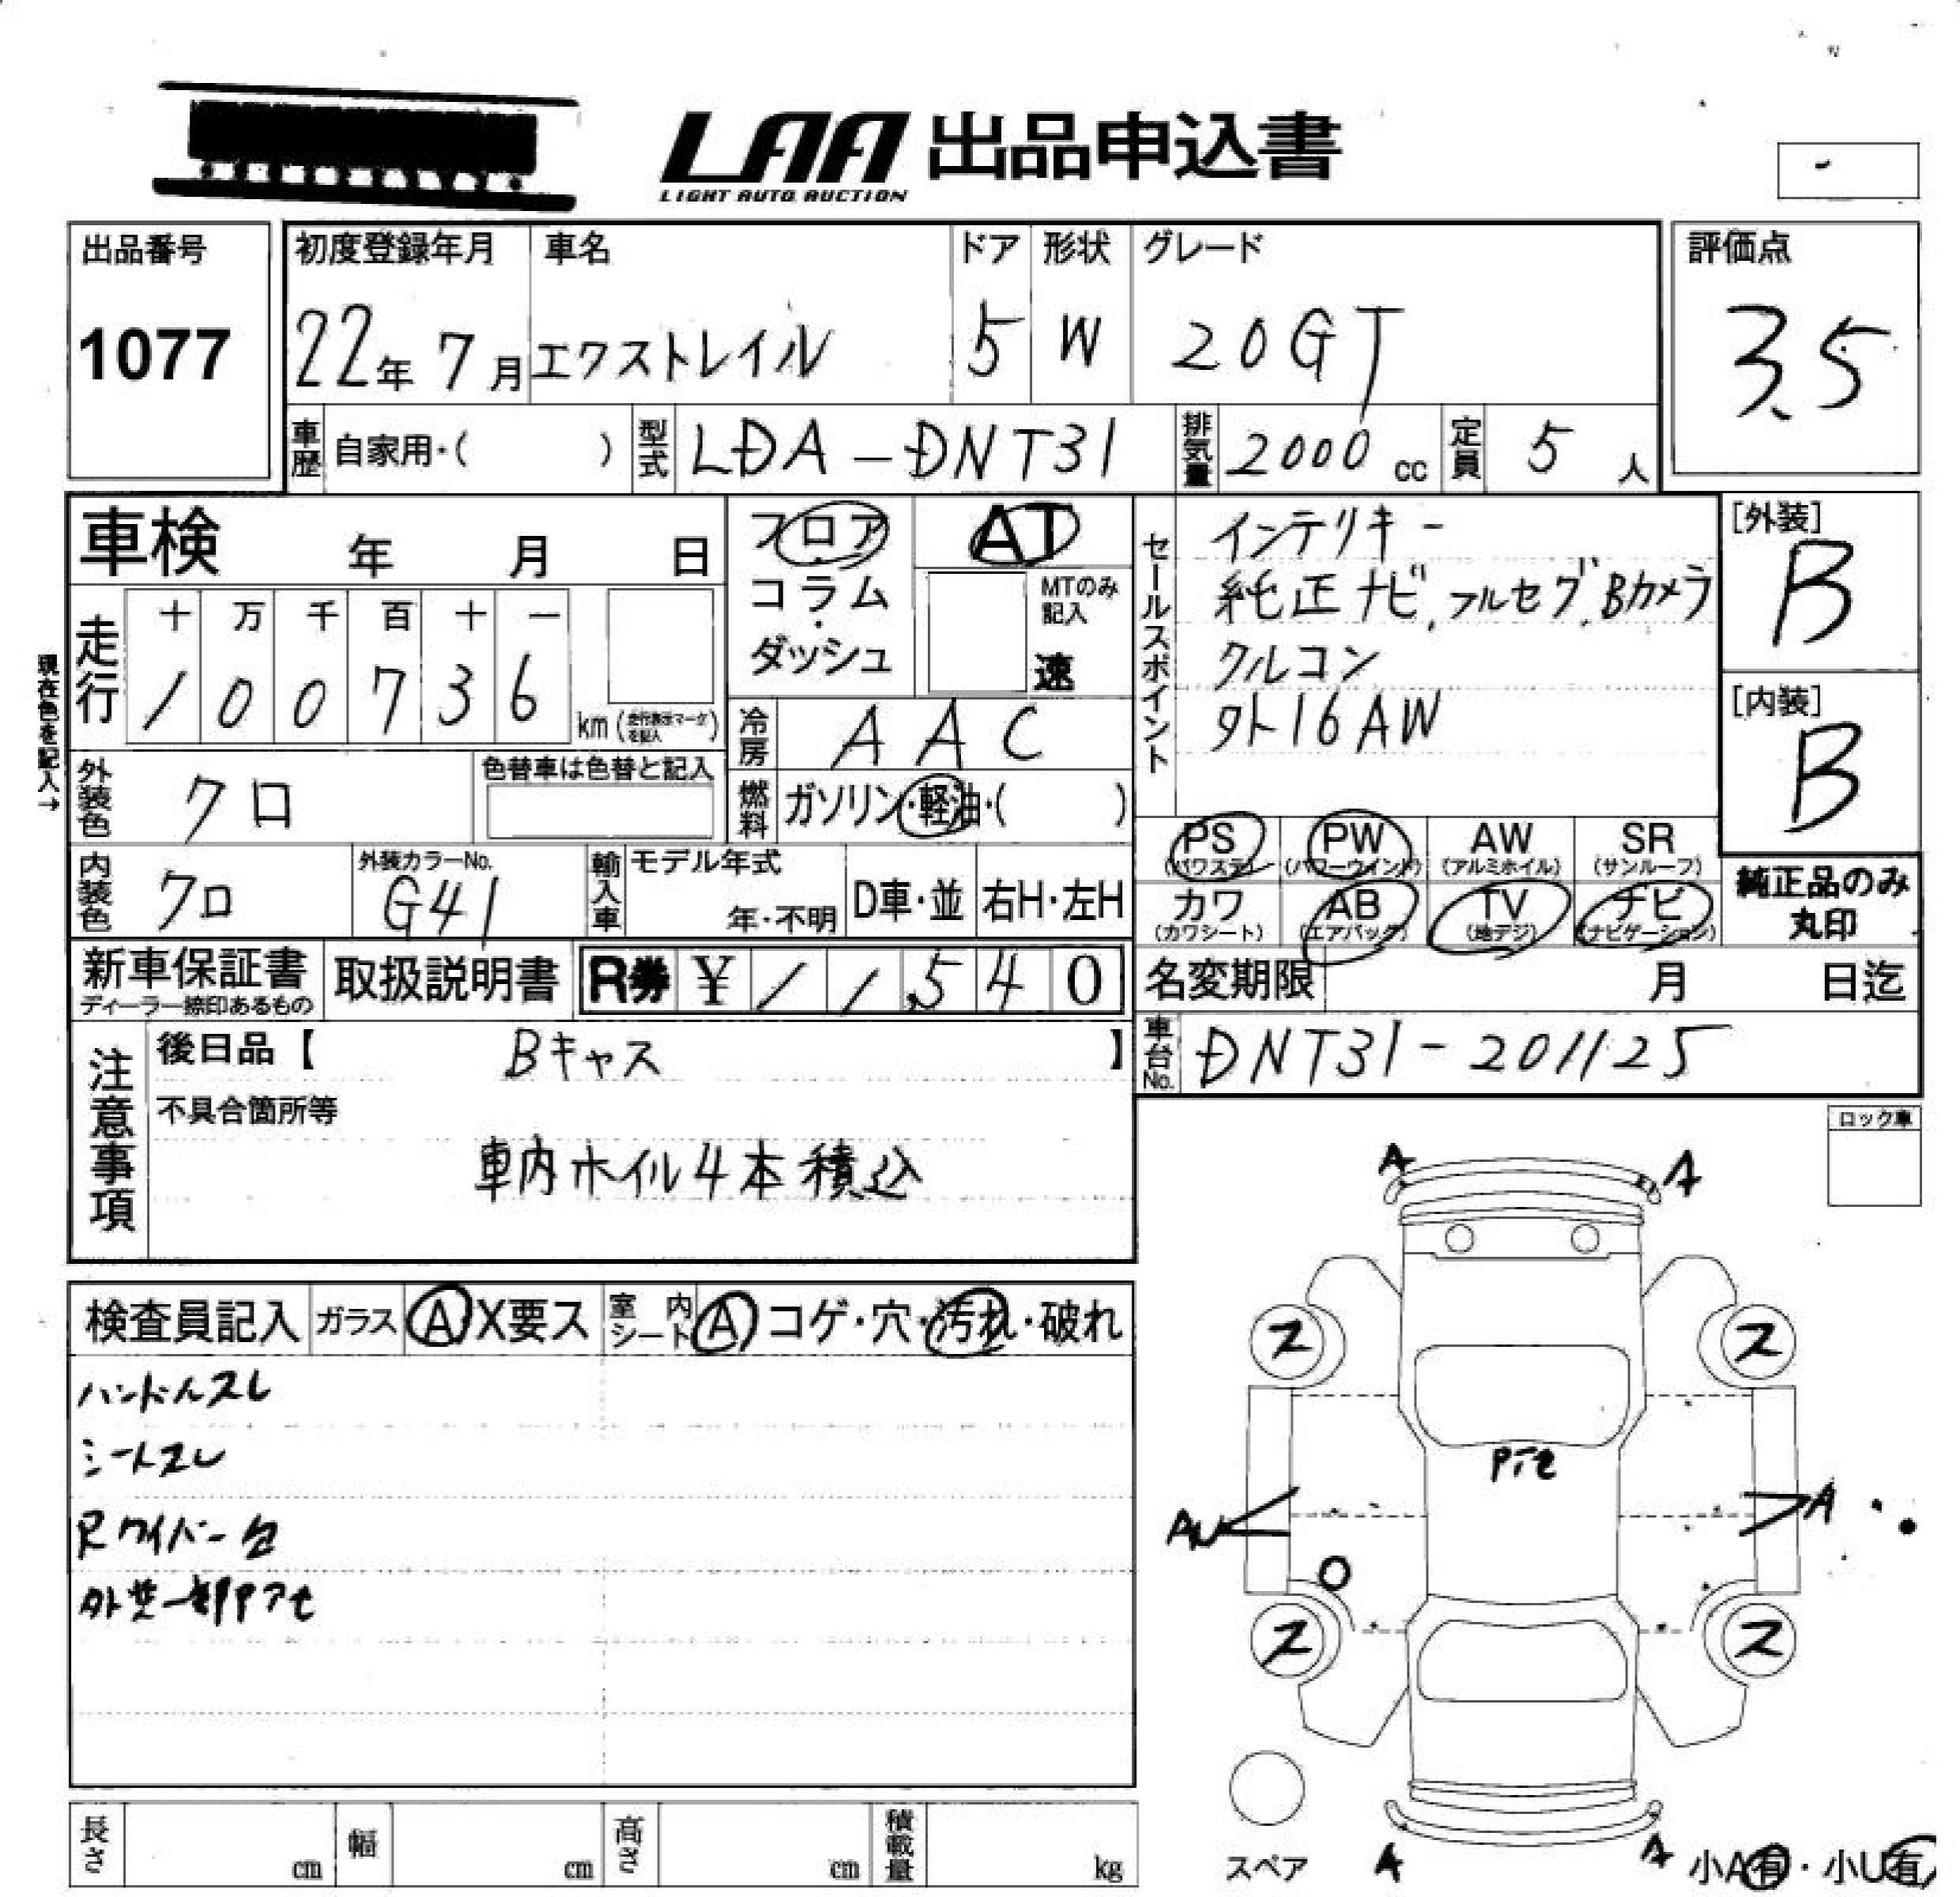 LAA 出品申込書
LIGHT AUTO AUCTION
出品番号
1077
初度登録年月 車名 ドア 形状 グレード
22年 7月 エクストレイル 5 W 20GT
評価点
3.5
車歴 自家用・( ) 型式 LDA-DNT31 排気量 2000 cc 定員 5 人
車検 年 月 日
フロア
コラム
ダッシュ
AT
MTのみ記入
速
セールスポイント
インテリキー
純正ナビ、フルセグ、Bカメラ
クルコン
外16AW
[外装]
B
[内装]
B
現在色を記入→
走行 十 万 千 百 十 一
1 0 0 7 3 6 km (走行表示マークを記入)
冷房 AAC
燃料 ガソリン・軽油・( )
外装色 クロ 色替車は色替と記入
内装色 クロ 外装カラーNo. G41 輸入車 モデル年式 年・不明 D車・並 右H・左H
PS (パワステ) PW (パワーウインド) AW (アルミホイル) SR (サンルーフ)
カワ (カワシート) AB (エアバッグ) TV (地デジ) ナビ (ナビゲーション)
純正品のみ
丸印
新車保証書 ディーラー捺印あるもの 取扱説明書 R券 ¥ 11,540
名変期限 月 日迄
車台No. DNT31-201125
注意事項
後日品【 Bキャス 】
不具合箇所等
車内ホイル4本積込
ロック車
検査員記入 ガラス A X要ス 室内シート A コゲ・穴・汚れ・破れ
ハンドルスレ
シートスレ
Rワイパー台
外装一部Pアセ
A A
ス ス
Pアセ
AU A
O
ス ス
スペア A A 小A有・小U有
長さ cm 幅 cm 高さ cm 積載量 kg